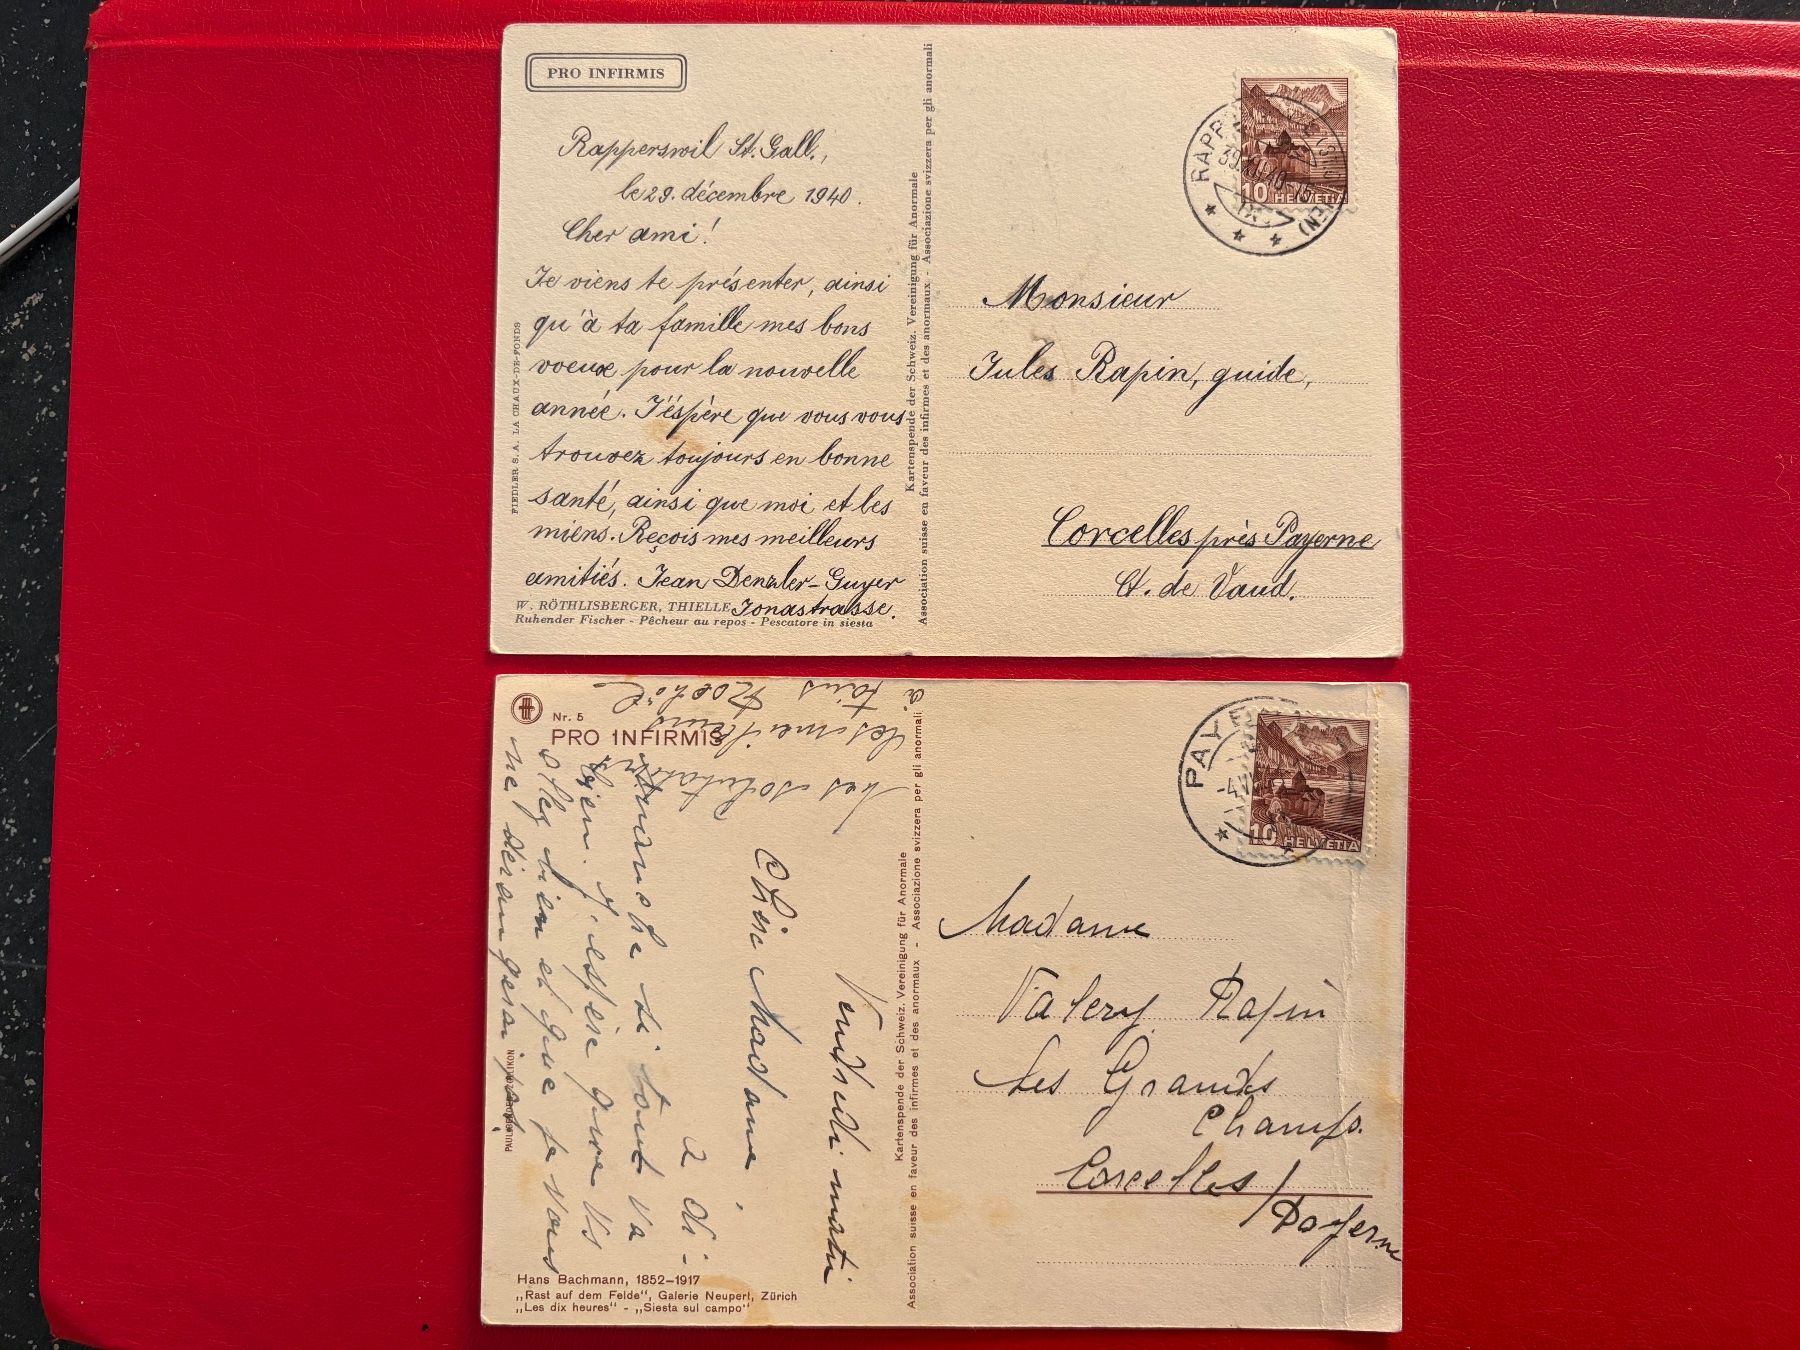 PRO INFIRMIS
Rapperswil St. Gall.,
le 29. décembre 1940.
Cher ami!
Je viens te présenter, ainsi
qu'à ta famille mes bons
voeux pour la nouvelle
année. J'éspère que vous vous
trouvez toujours en bonne
santé, ainsi que moi et les
miens. Reçois mes meilleurs
amitiés. Jean Denzler-Guyer
Jonastrasse.
W. RÖTHLISBERGER, THIELLE
Ruhender Fischer - Pêcheur au repos - Pescatore in siesta
FIEDLER S.A. LA CHAUX-DE-FONDS
Kartenspende der Schweiz. Vereinigung für Anormale
Association suisse en faveur des infirmes et des anormaux - Associazione svizzera per gli anormali
10 HELVETIA
Monsieur
Jules Rapin, guide,
Corcelles près Payerne
Ct. de Vaud.
Nr. 5
PRO INFIRMIS
Vendredi matin
Chère Madame
2 di-
manche si tout va
bien. J'espère que vs
allez bien et que je vous
ne dérangerai pas.
à tous
les meilleurs
Les salutations
Hans Bachmann, 1852–1917
„Rast auf dem Felde", Galerie Neupert, Zürich
„Les dix heures" - „Siesta sul campo"
Kartenspende der Schweiz. Vereinigung für Anormale
Association suisse en faveur des infirmes et des anormaux - Associazione svizzera per gli anormali
10 HELVETIA
Madame
Valery Rapin
Les Grands
Champs.
Corcelles/
Payerne